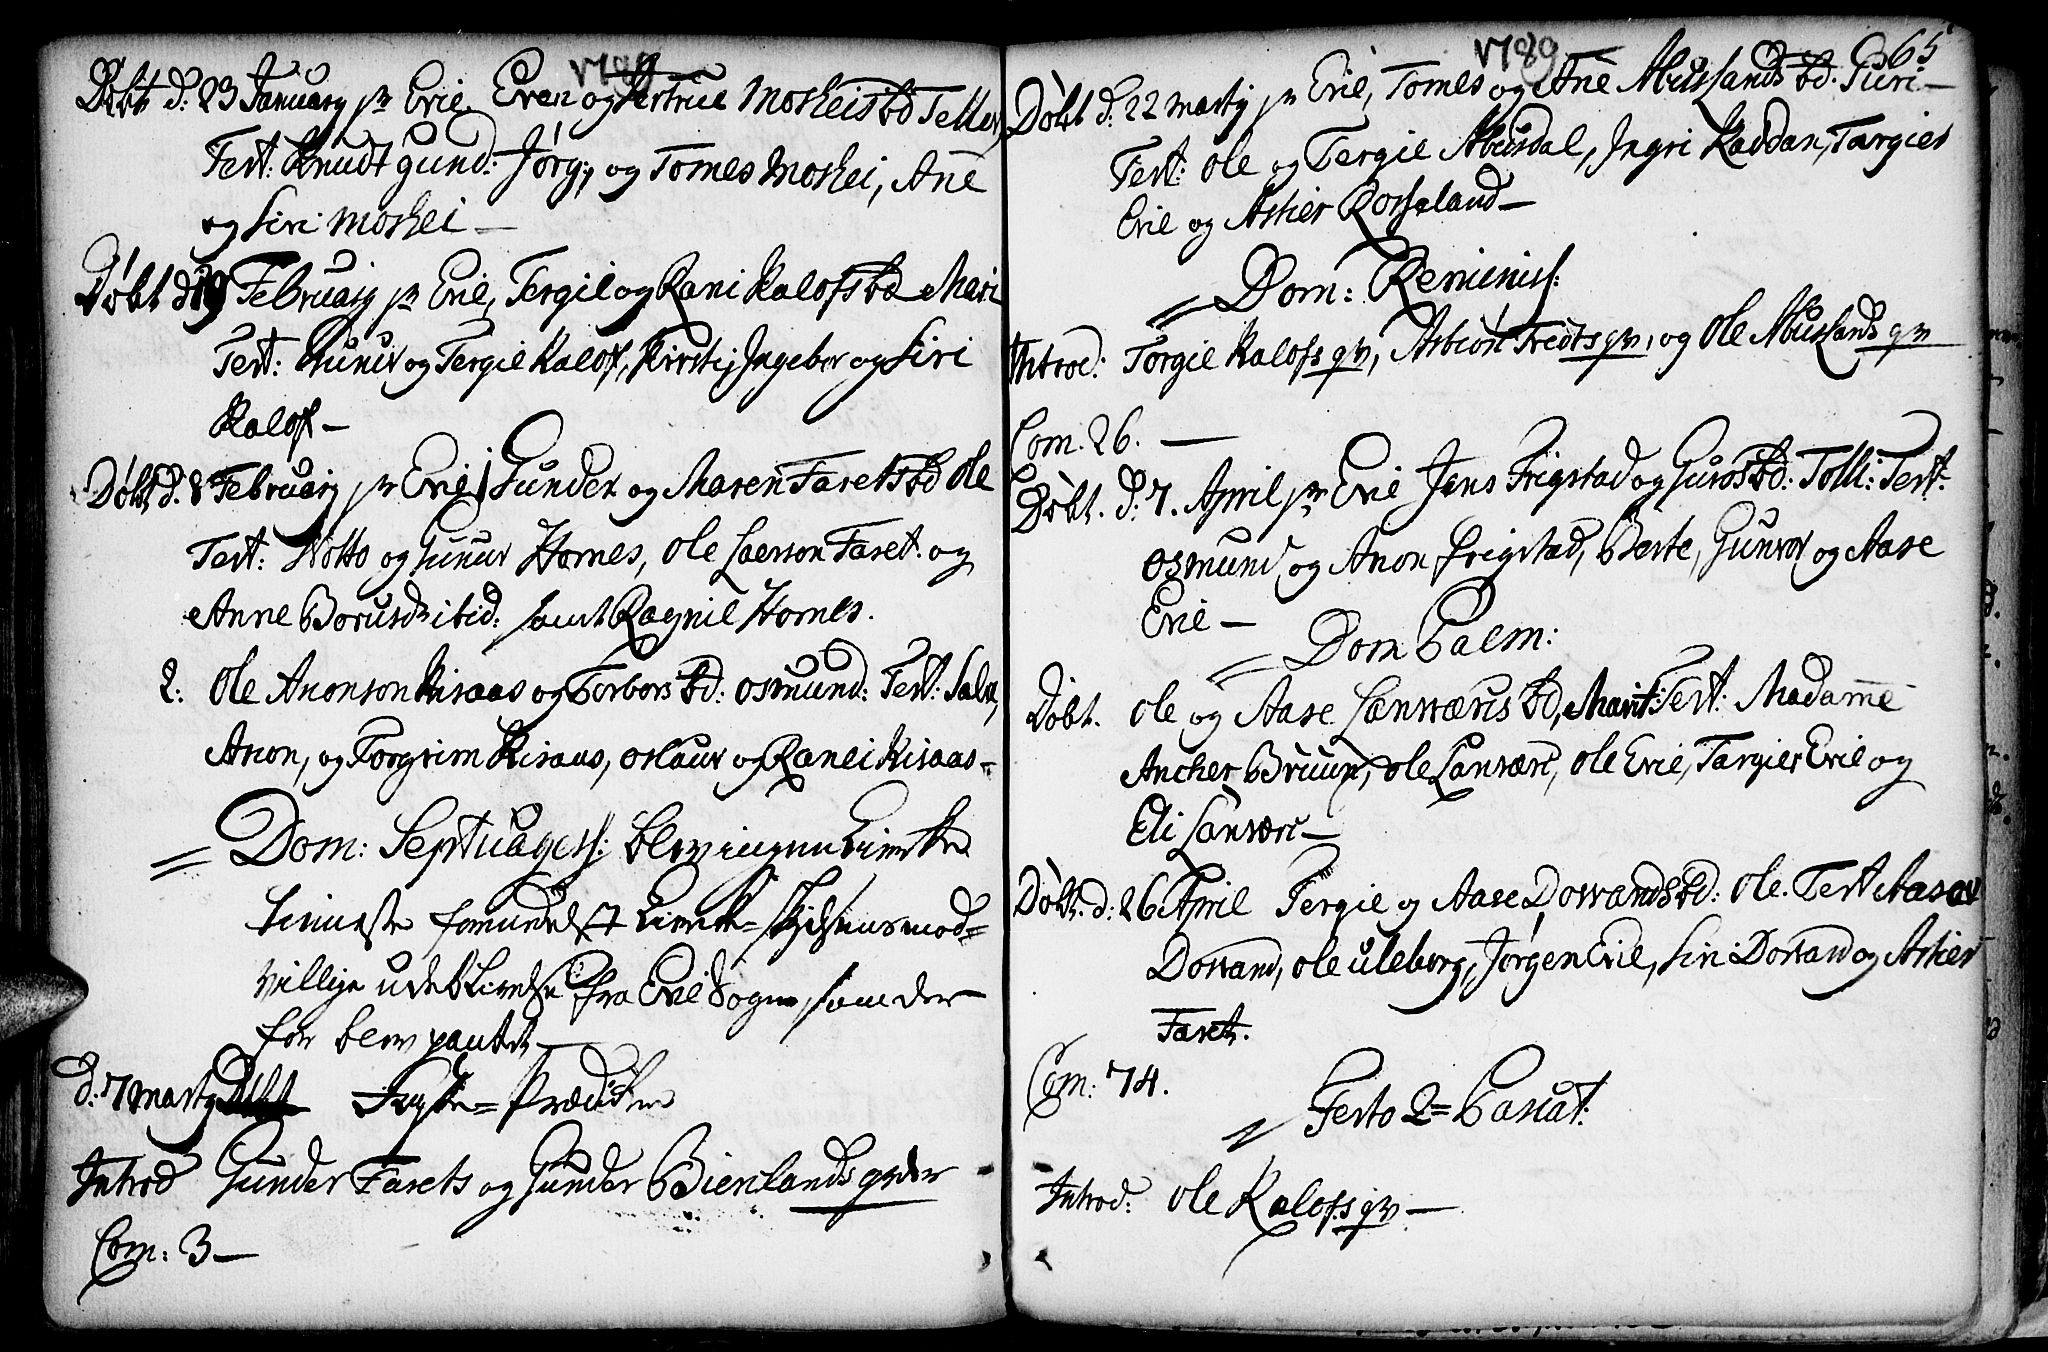 1789
Døbt d: 23 January in Evie, Even og Mosheis bd Tellev,
Test: Knudt gund: Jørg:, og Tomes Moshei, Ane
og Siri Moshei —
Døbt d 19 February in Evie, Tergie og Rani Kalofs bd Mari
Test: Gunder og Tergie Kalof, Kirsti, Ingebor og Siri
Kalof —
Døbt d: 8 February in Evie, Gunder og Maren Farets bd Ole
Test: Notto og Gunur Hornes, Ole Laerson Faret og
Anne ibid: samt Ragnil Hornes.
2: Ole Anonson Risaas og Torbors bd: Osmund: Test: Salve,
Anon, og Torgrim Risaas, Oslaur og Ranei Risaas -
Dom: Septuages: blev ingen
formedelst
villige udeblivelse fra Evie Sogn, som der
for blev pantet —
d: 7 Marty Døbt Faste = Prædiken
Introd Gunder Farets og Gunder Bierelands qvder
Com: 3 —
1789
65
Døbt d: 22 Marty in Evie, Tomes og Ane Abuslands bd: Siri —
Test: Ole og Tergie Abusdal, Ingri Raddan, Targier
Evie og Asker Rosseland —
Dom: Reminiss:
Introd: Torgie Kalofs qv, Asbiør qv, og Ole Abuslands qv
Com. 26. —
Døbt. d: 7. April in Evie Jens Frigstad og Guros bd: Tolli: Test:
Osmund og Anon Frigstad, Berte, Gunvor og Aase
Evie —
Dom Palm:
Døbt. Ole og Aase Landværis bd, Marit: Test: Madame
Ancher Bruun, Ole Lanværi, Ole Evie, Targier Evie og
Eli Lanværi —
Døbt. d: 26 April Tergie og Aase Dovvands bd: Ole. Test Aasov
Dovvand, Ole Uleberg, Jørgen Evie, Siri Dovvand og Asker
Faret.
Com: 74.
Festo 2= Pascat:
Introd: Ole Kalofs qv —